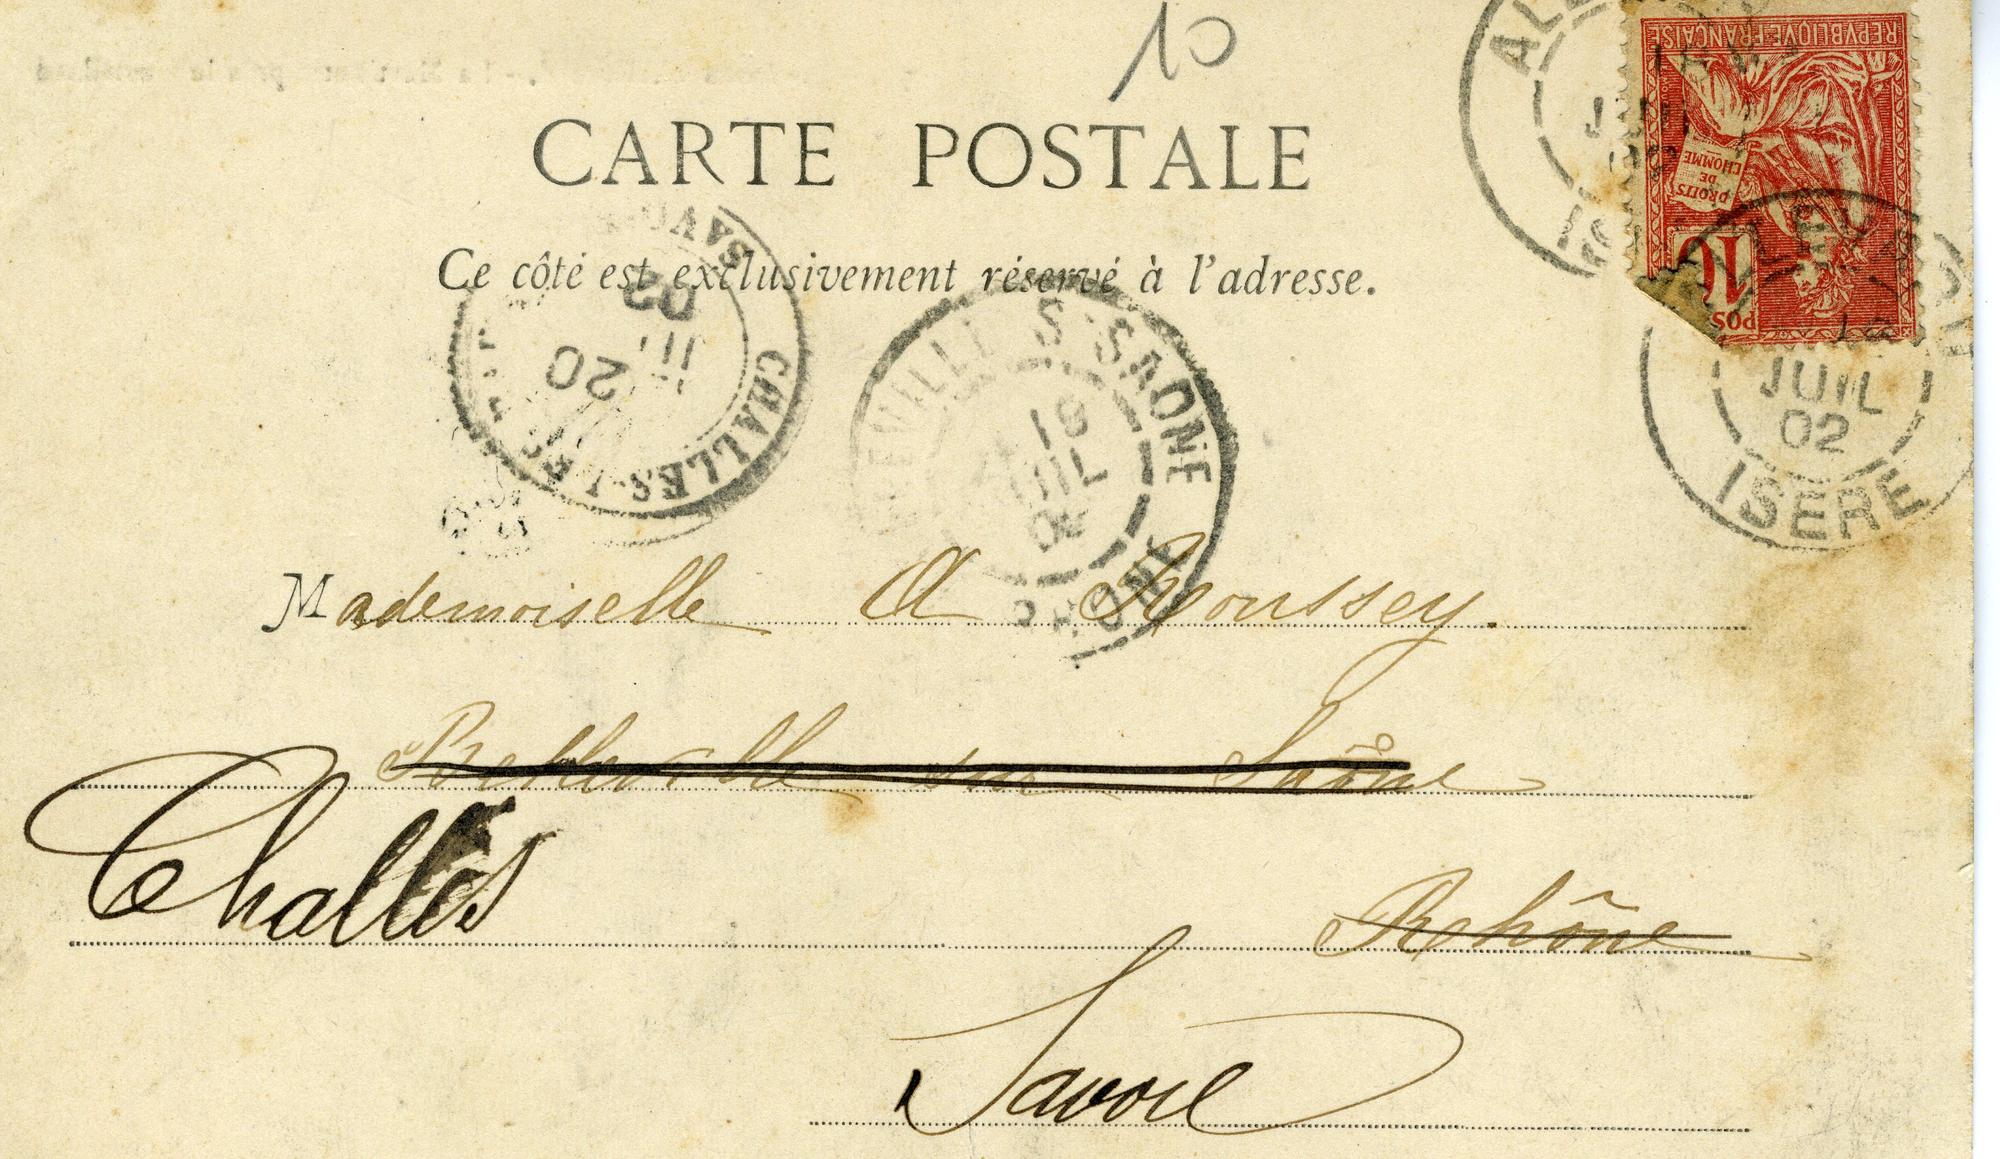 10
CARTE POSTALE
Ce côté est exclusivement réservé à l'adresse.
REPVBLIQVE FRANÇAISE
DROITS
DE
L'HOMME
10
POS
SAVO
CHALLES-LES
20
02
S-SAONE
18
JUIL
02
RHONE
ALLEVARD
JUIL
02
ISERE
Mademoiselle A Roussey.
Belleville sur Saône
Challes
Rhône
Savoie